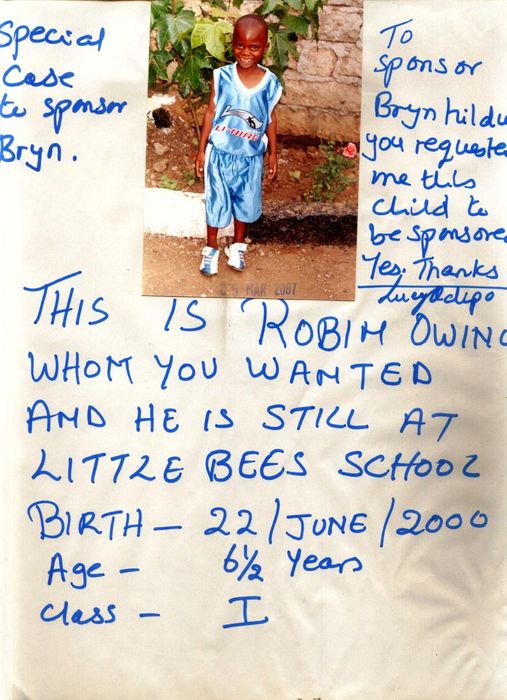 Special
Case
to sponsor
Bryn.
LI-NING
MAR 2007
To
sponsor
Bryn
you requeste
me this
child to
be sponsore
Yes. Thanks
THIS IS ROBIM OWING
WHOM YOU WANTED
AND HE IS STILL AT
LITTLE BEES SCHOOL
BIRTH – 22/JUNE/2000
Age – 6½ Years
Class – I